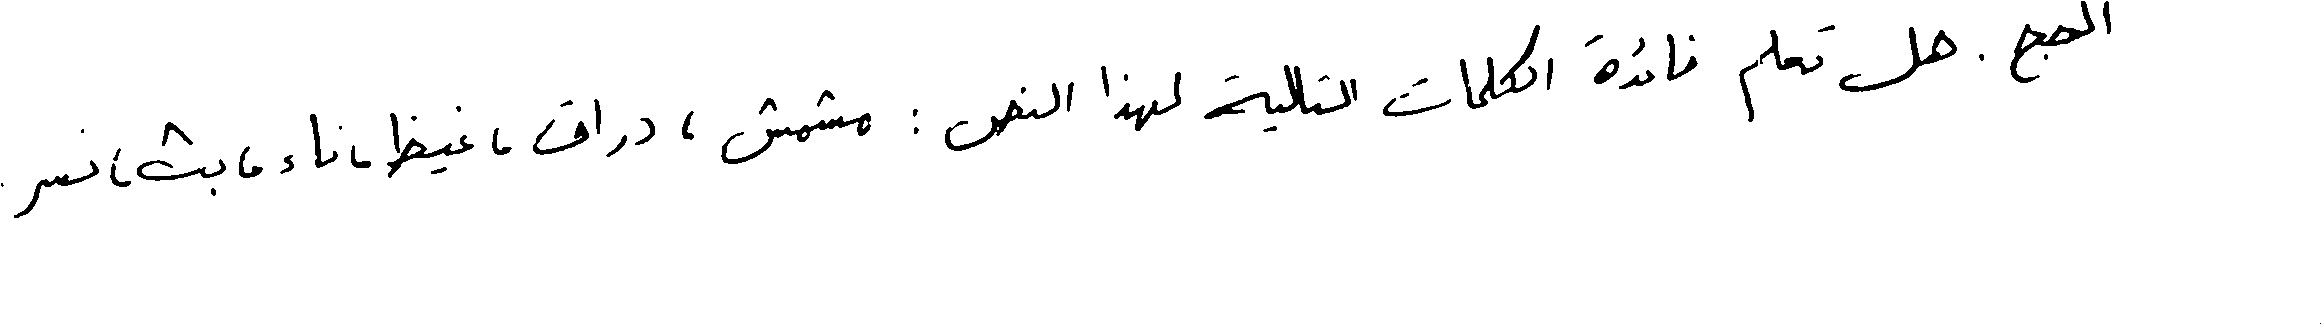 الحجج . هل تعلم فائدة الكلمات التالية لهذا النص : مشمش ، دراق ، غيظ ، ناء ، بث ، نسر .